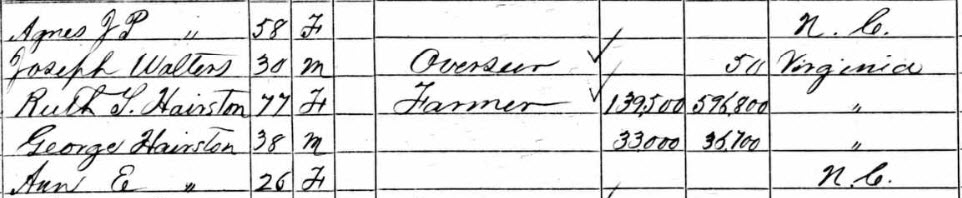 Agnes J P " 58 F N. C.
Joseph Walters 30 m Overseer 50 Virginia
Ruth S. Hairston 77 F Farmer 139,500 596,800 "
George Hairston 38 m 33,000 36,700 "
Ann E " 26 F N. C.